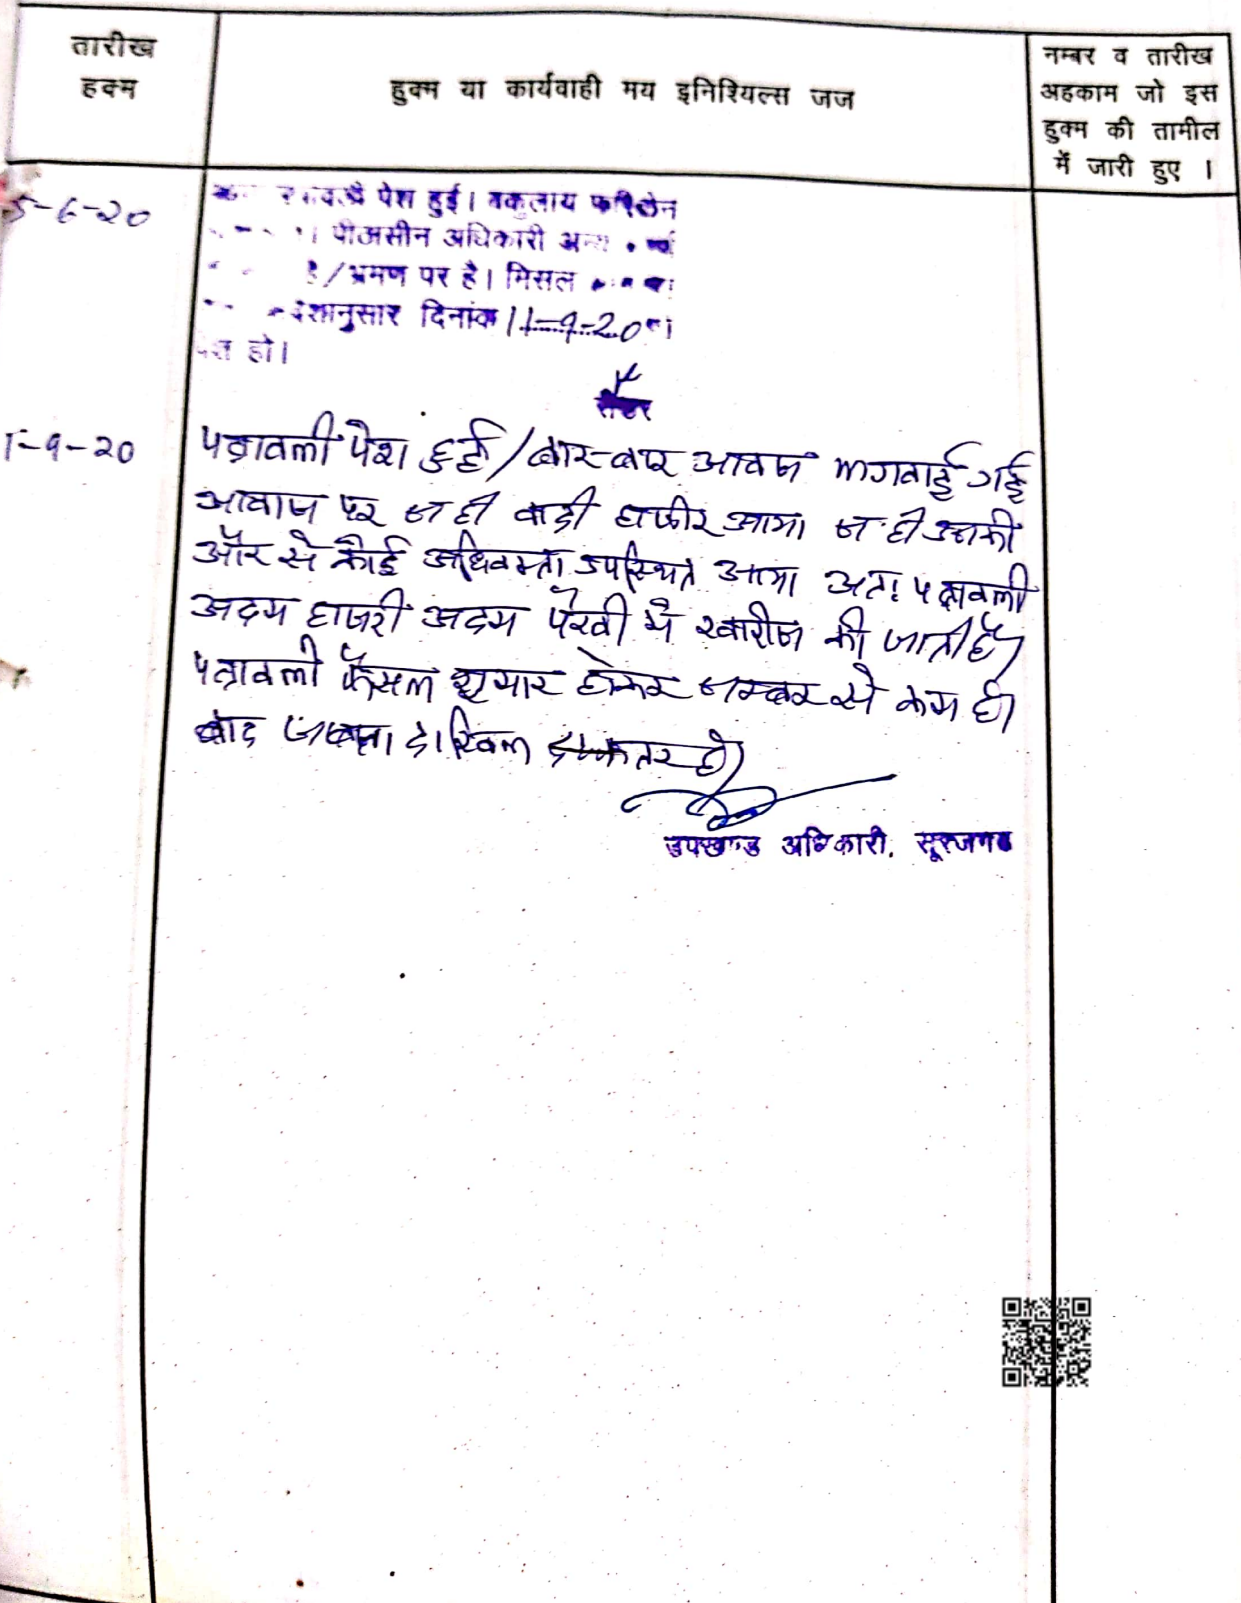 तारीख
हुक्म
हुक्म या कार्यवाही मय इनिशियल्स जज
नम्बर व तारीख
अहकाम जो इस
हुक्म की तामील
में जारी हुए ।
5-6-20
पेश हुई। वकुलाय फरिकेन
पीअसीन अधिकारी अन्य
है/भ्रमण पर है। मिसल
दिनांक 11-9-20 को
पेश हो।
रीडर
1-9-20
पत्रावली पेश हुई/बार-बार आवाज लगवाई गई
आवाज पर न ही वादी हाजीर आया न ही उनकी
और से कोई अधिवक्ता उपस्थित आया अतः पत्रावली
अदम हाजरी अदम पैरवी मे खारीज की जाती है।
पत्रावली फैसल शुमार होकर नम्बर से कम हो।
बाद जाब्ता दाखिल दफ्तर हो।
उपखण्ड अधिकारी, सूरजगढ